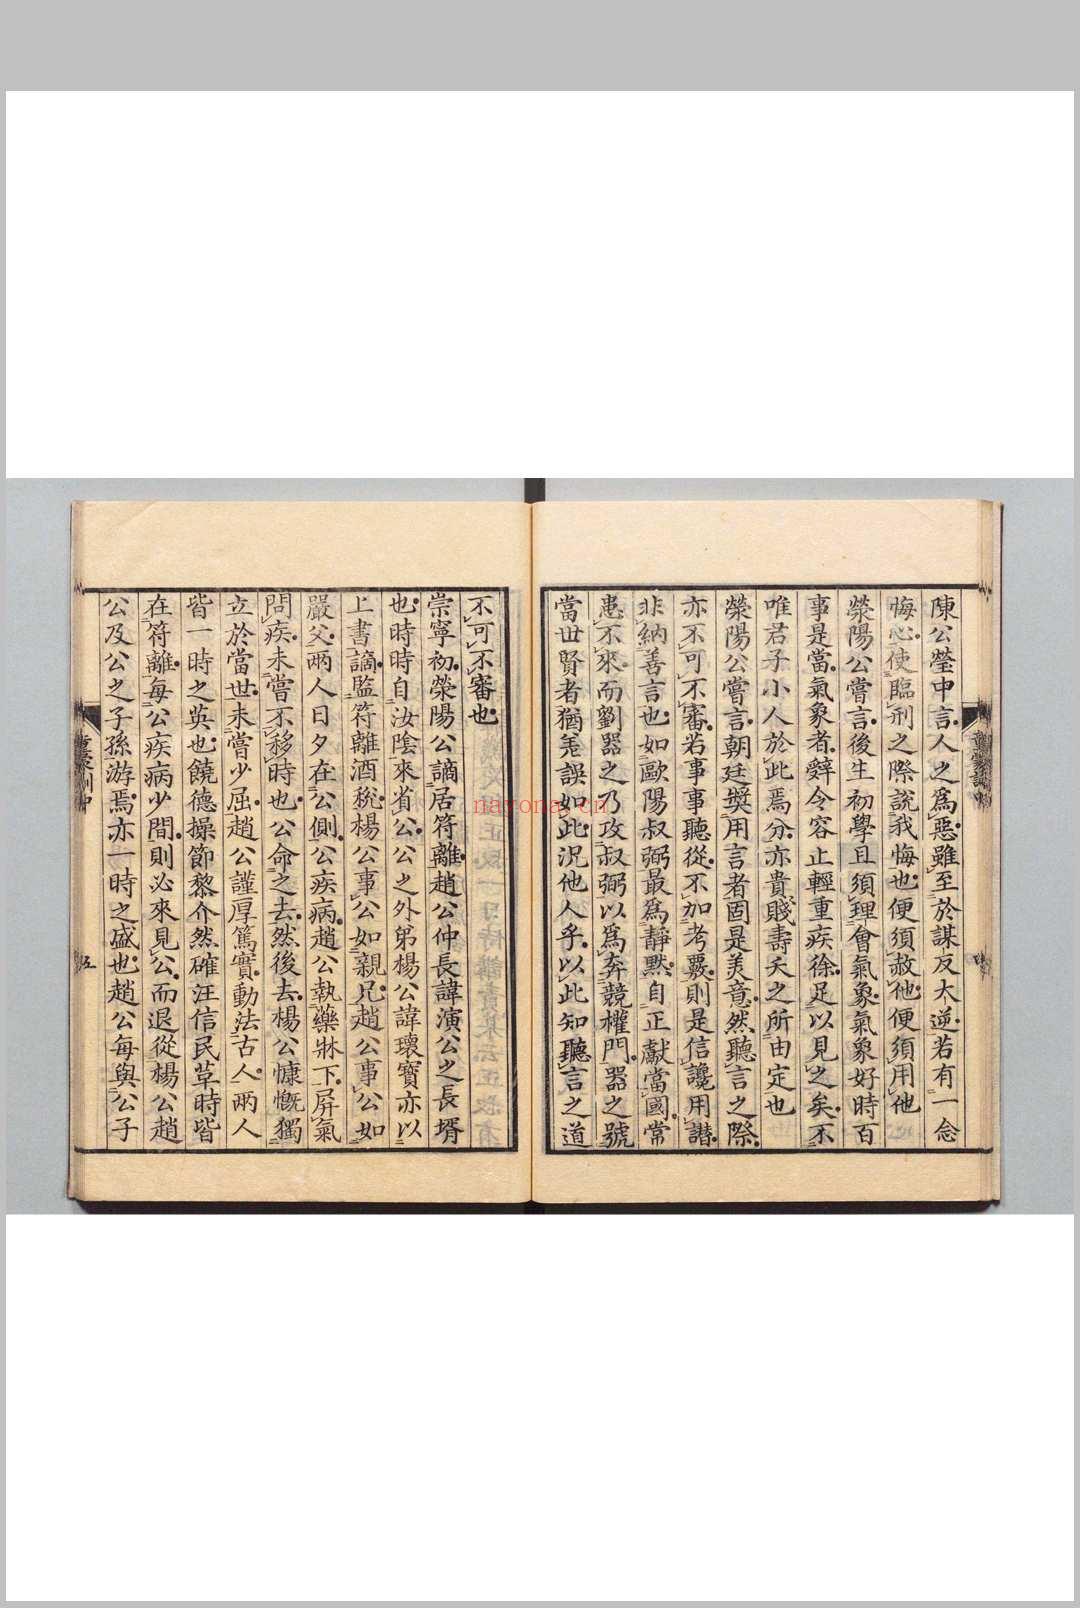 陳公瑩中言人之為惡雖至於謀反大逆若有一念
悔心使臨刑之際說我悔也便須赦他便須用他
滎陽公嘗言後生初學且須理會氣象氣象好時百
事是當氣象者辭令容止輕重疾徐足以見之矣不
唯君子小人於此焉分亦貴賤壽夭之所由定也
滎陽公嘗言朝廷獎用言者固是美意然聽言之際
亦不可不審若事事聽從不加考覈則是信讒用譖
非納善言也如歐陽叔弼最為靜默自正獻當國常
患不來而劉器之乃攻叔弼以為奔競權門器之號
當世賢者猶差誤如此況他人乎以此知聽言之道
不可不審也
崇寧初滎陽公謫居符離趙公仲長諱演公之長壻
也時時自汝陰來省公公之外弟楊公諱瓌寶亦以
上書謫監符離酒稅楊公事公如親兄趙公事公如
嚴父兩人日夕在公側公疾病趙公執藥牀下屏氣
問疾未嘗不移時也公命之去然後去楊公慷慨獨
立於當世未嘗少屈趙公謹厚篤實動法古人兩人
皆一時之英也饒德操節黎介然確汪信民革時皆
在符離每公疾病少間則必來見公而退從楊公趙
公及公之子孫游焉亦一時之盛也趙公每與公子
童蒙訓中
五
nayona.cn